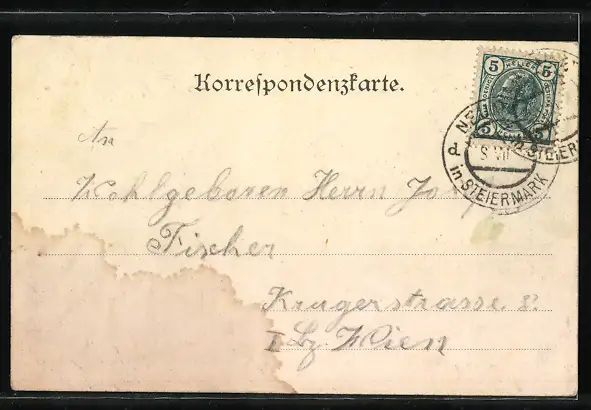 Korrespondenzkarte.
5 HELLER 5
5 5
NE
d. 9 VII
in STEIERMARK
STEIER
An
Wohlgeboren Herrn Josef
Fischer
Krugerstrasse 8.
I Bz. Wien